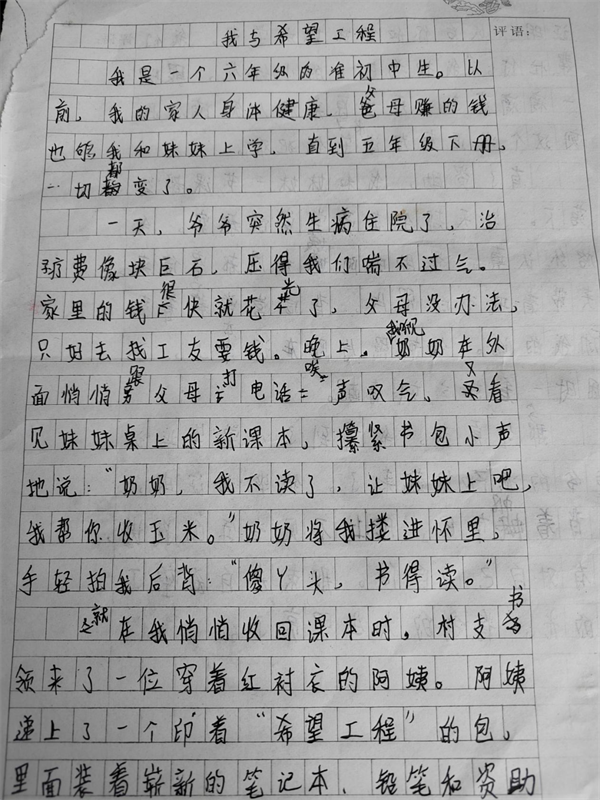 我与希望工程
评语:
我是一个六年级的准初中生。以
前，我的家人身体健康，爸母赚的钱
也够我和妹妹上学，直到五年级下册，
一切都变了。
一天，爷爷突然生病住院了，治
疗费像块巨石，压得我们喘不过气。
家里的钱很快就花光了，父母没办法，
只好去找工友要钱。晚上，我听见奶奶在外
面悄悄跟父母打电话唉声叹气，又看
见妹妹桌上的新课本，攥紧书包小声
地说："奶奶，我不读了，让妹妹上吧，
我帮你收玉米。"奶奶将我搂进怀里，
手轻拍我后背："傻丫头，书得读。"
就在我悄悄收回课本时，村支书
领来了一位穿着红衬衣的阿姨。阿姨
递上了一个印着"希望工程"的包，
里面装着崭新的笔记本、铅笔和资助